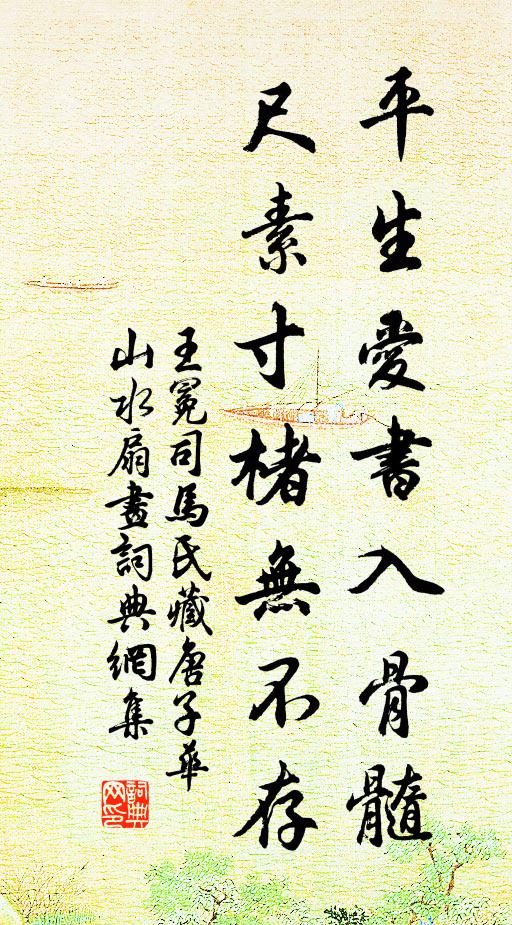 平生愛書入骨髓
尺素寸楮無不存
王冕司馬氏藏唐子華
山水扇畫詞典網集
詞典網印